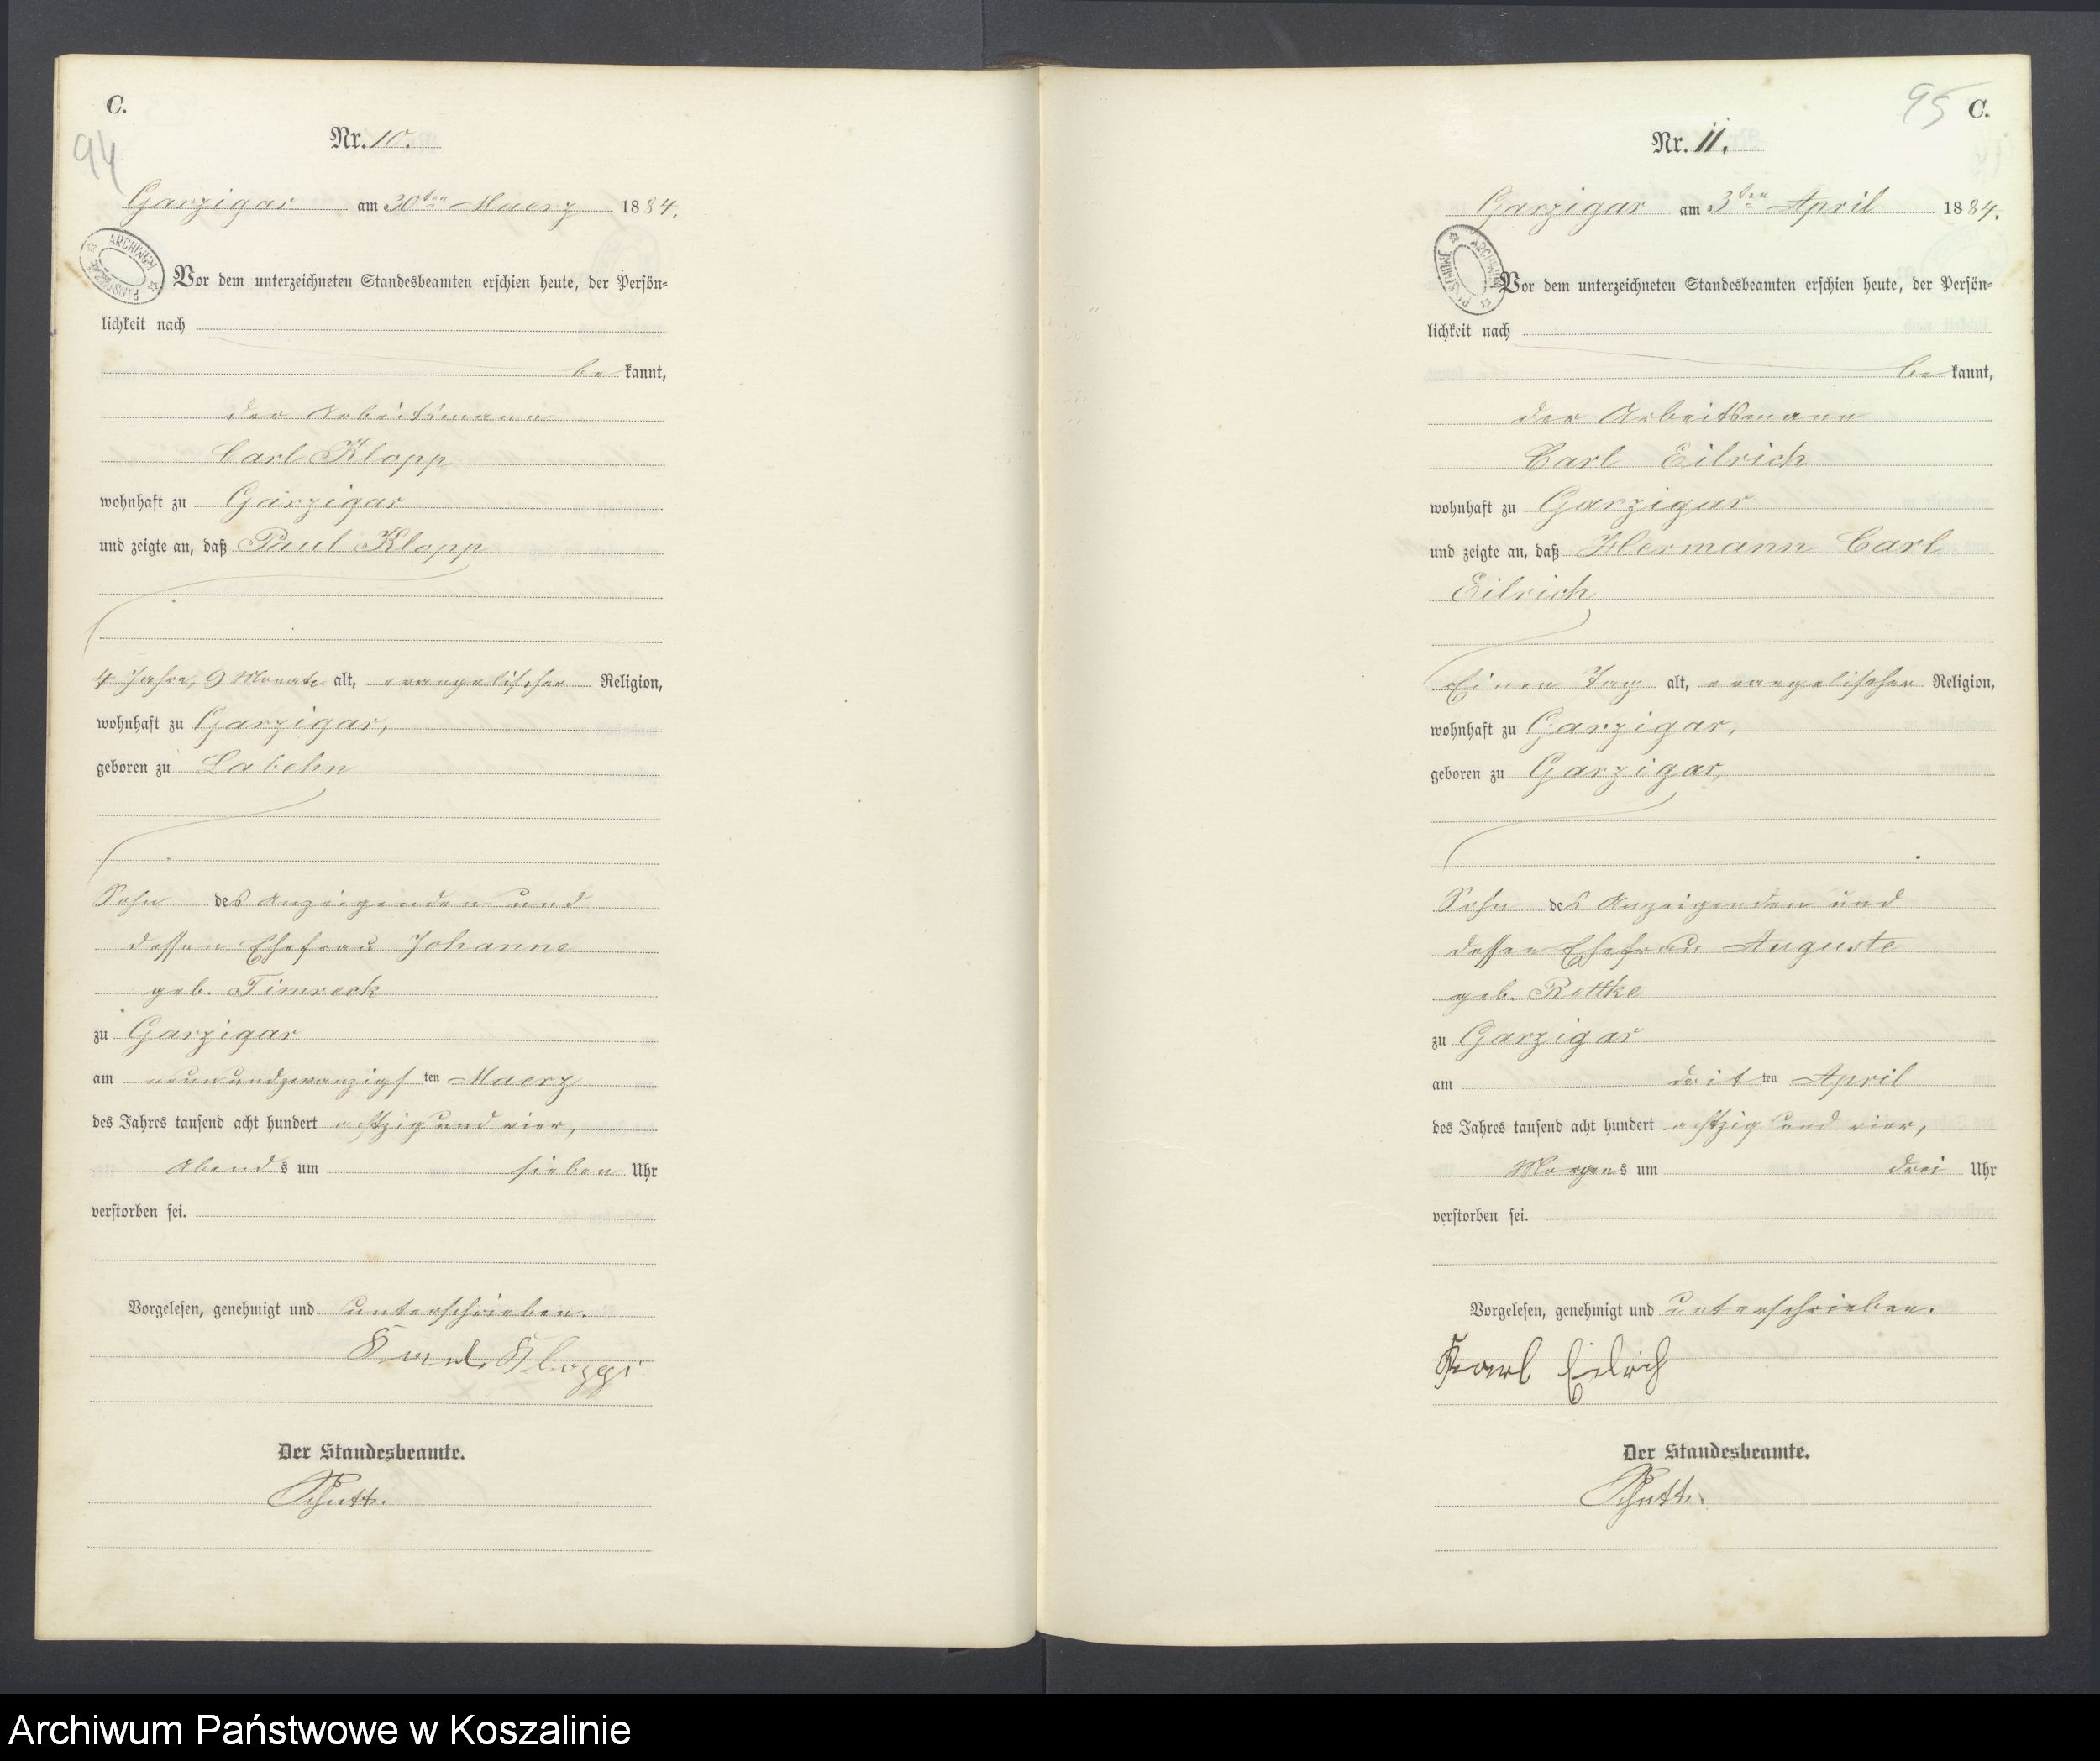 C.
94
Nr. 10.
Garzigar am 30ten Maerz 1884.
ARCHIWUM PAŃSTWOWE
Vor dem unterzeichneten Standesbeamten erschien heute, der Persön-
lichkeit nach
be kannt,
der Arbeitsmann
Carl Klopp
wohnhaft zu Garzigar
und zeigte an, daß Paul Klopp
4 Jahre, 9 Monate alt, evangelischer Religion,
wohnhaft zu Garzigar,
geboren zu Labehn
Sohn des Anzeigenden und
dessen Ehefrau Johanne
geb. Timreck
zu Garzigar
am neunundzwanzigsten Maerz
des Jahres tausend acht hundert achtzig und vier,
Abends um sieben Uhr
verstorben sei.
Vorgelesen, genehmigt und unterschrieben.
Klopp
Der Standesbeamte.
95 C.
Nr. 11.
Garzigar am 3ten April 1884.
ARCHIWUM PAŃSTWOWE
Vor dem unterzeichneten Standesbeamten erschien heute, der Persön-
lichkeit nach
be kannt,
der Arbeitsmann
Carl Eilrich
wohnhaft zu Garzigar
und zeigte an, daß Hermann Carl
Eilrich
Einen Tag alt, evangelischer Religion,
wohnhaft zu Garzigar,
geboren zu Garzigar,
Sohn des Anzeigenden und
dessen Ehefrau Auguste
geb. Rettke
zu Garzigar
am dritten April
des Jahres tausend acht hundert achtzig und vier,
Morgens um drei Uhr
verstorben sei.
Vorgelesen, genehmigt und unterschrieben.
Karl Eilrich
Der Standesbeamte.
Archiwum Państwowe w Koszalinie